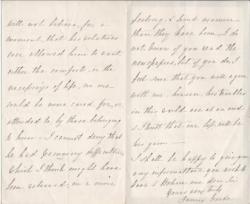 will not believe for a
moment, that his relations
ever allowed him to want
either the comforts or the
necessaries of life, no one
could be more cared for, or
attended to, by those belonging
to him – I cannot deny that
he had pecuniary difficulties
which I think might have
been relieved, in a more
feeling, & kind manner
than they have been. I do
not know if you read the
newspapers, but if you do, I
feel sure that you will agree
with me. however, his troubles
in this world are at an end
& I trust that our loss will be
his gain –
I shall be happy to give you
any information you wish to
have & believe me dear Sir
Yours very truly